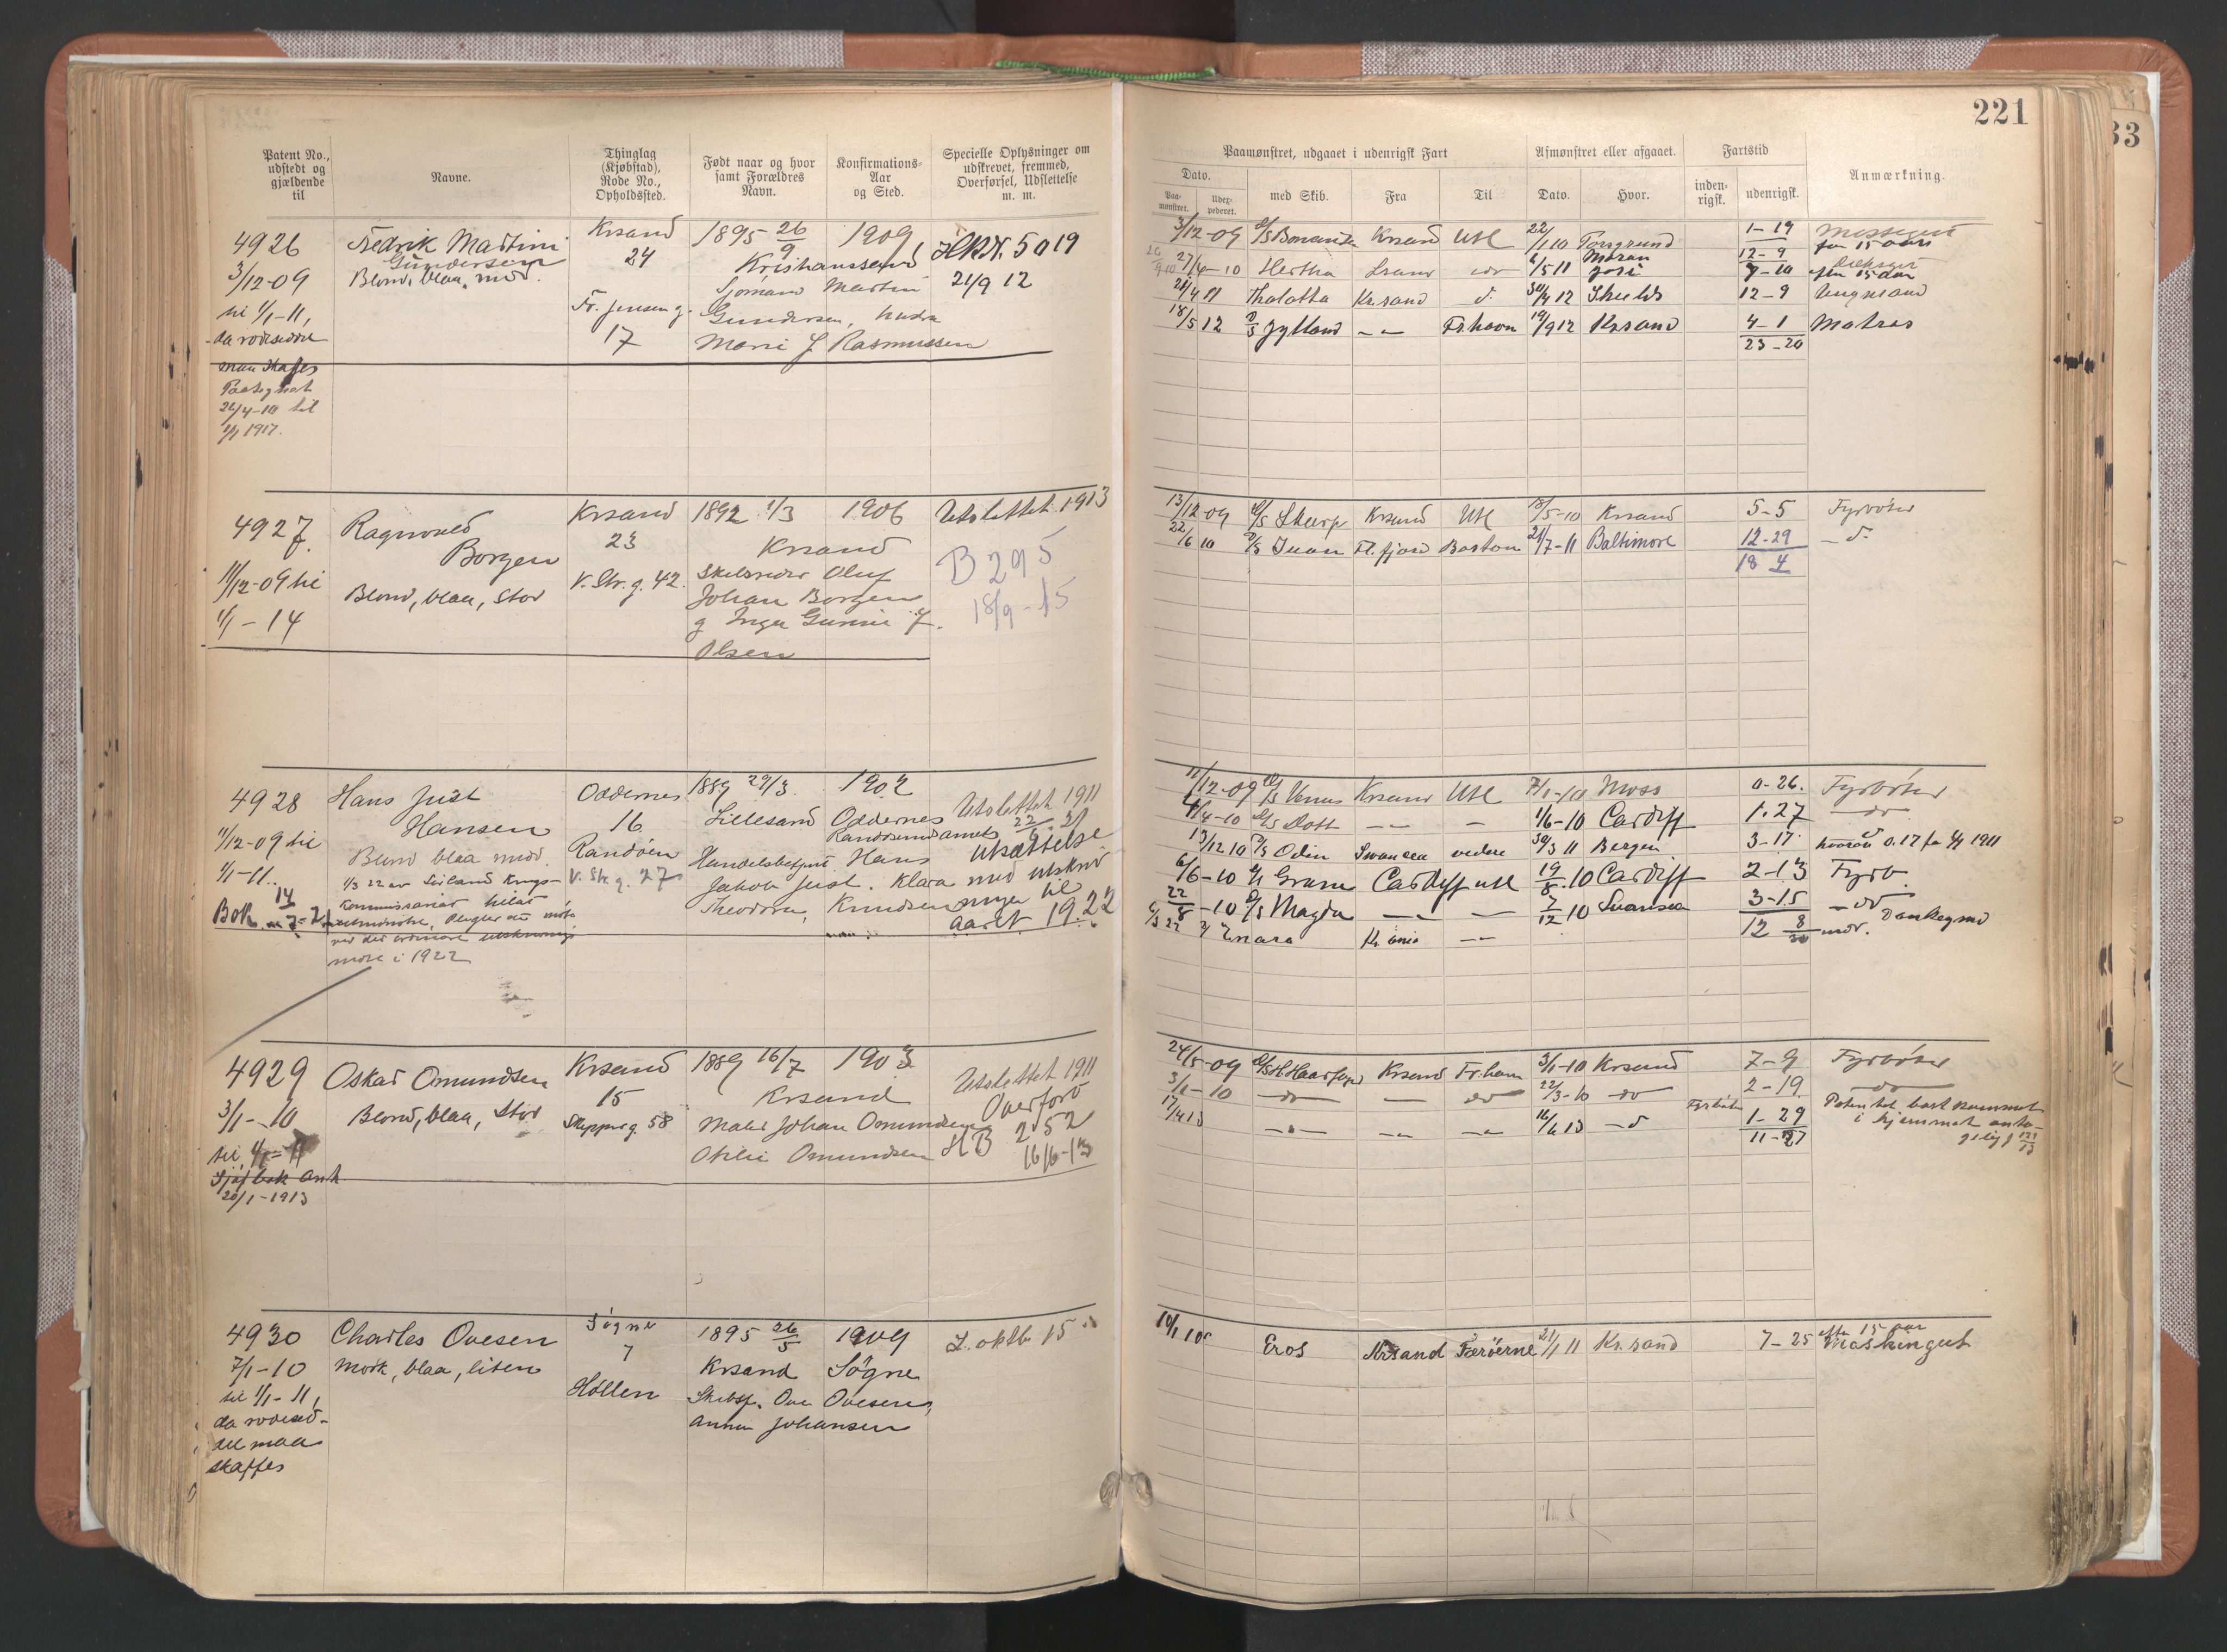 221
33
Patent No., udstedt og gjældende til
Navne.
Thinglag (Kjøbstad), Rode No., Opholdssted.
Født naar og hvor samt Forældres Navn.
Konfirmations-Aar og Sted.
Specielle Oplysninger om udskrevet, fremmed, Overførsel, Udslettelse m. m.
Paamønstret, udgaaet i udenrigsk Fart
Afmønstret eller afgaaet.
Fartstid
Anmærkning.
Dato.
Paa-mønstret.
Udex-pederet.
med Skib.
Fra
Til
Dato.
Hvor.
inden-rigsk.
udenrigsk.
4926
3/12-09
til 1/1-11,
da rodeseddel
maa skaffes
Paategnet
26/4-10 til
1/1 1917.
Fredrik Martini
Gundersen
Blond, blaa, mid.
Krsand
24
Fr. Jensen g.
17
1895 26/9
1909
Kristianssand
Sjømand Martin
Gundersen, hustru
Marie J Rasmussen
HkN. 5019
21/9 12
3/12-09 D/S Bonanza Krsand Utl 22/1 10 Porsgrund 1-19 Messegut
før 15 aar
27/4-10 Hertha Lsand do 6/5 11 12-9
7-10 efter 15 aar
21/4 11 Thalatta Kr.sand d. 30/4 12 Shields 12-9 Ungmand
18/5 12 D/S Jylland -"- Fr.havn 19/9 12 Krsand 4-1 Matros
23-20
4927
11/12-09 til
1/1-14
Ragnvald
Borgen
Blond, blaa, stor
Krsand
23
V. Str. g. 42.
1892 1/3
1906
Krsand
Skibsreder Oluf
Johan Borgen
g Inga Gunni f.
Olsen
Utslettet 1913
B 295
18/9-15
13/12 09 D/S Skarp Krsand Utl 18/5-10 Krsand 5-5 Fyrbøter
22/6 10 D/S Juan Fl.fjord Boston 21/7-11 Baltimore 12-29 -d-
18 4
4928
11/12-09 til
1/1-11.
14
Bok
Hans Just
Hansen
Blond blaa mid.
1/3 22 av
møte i 1922
Oddernes
16
Randøen
V. Str. g. 27
1889 29/3
1902
Lillesand Oddernes
Handelsbetjent Hans
Jakob Just. Klara
Theodora, Knudsen
Utslettet 1911
utsættelse
med utskriv
ningen til
aaret 1922
11/12-09 D/S Venus Krsand Utl 7/1-10 Moss 0-26. Fyrbøter
4/4-10 D/S Dott -"- - 1/6-10 Cardiff 1.27 -do-
13/12 10 D/S Odin Swansea vedre 30/3 11 Bergen 3-17 hvorav 0.17 fra 1/1 1911
6/6-10 D/S Gram Cardiff utl 19/8-10 Cardiff 2-13 Fyrb.
22/8-10 D/S Magda -"- - 7/12 10 Svansea 3-15 -do-
6/3 22 Kr.ania -"- 12 8/30 mdr. Donkeymd
4929
3/1-10
til 1/1-11
Sjøf bok anh
20/1-1913
Oskar Omundsen
Blond, blaa, stor
Krsand
15
Skipperg. 58
1889 16/7
1903
Krsand
Maler Johan Omundsen
Otilie Omundsen
Utslettet 1911
Overført
HB 252
16/6-13
24/5-09 D/S H Haarfagre Krsand Fr.havn 3/1-10 Krsand 7-9 Fyrbøter
3/1-10 -do- - do 22/3-10 -do- 2-19 -do-
17/4 13 -"- -"- -"- 16/6 13 -d Fyrbøter 1-29
11-27
Patentet bortkommet
i hjemmet
4930
7/1-10
til 1/1-11,
da rodesed-
del maa
skaffes
Charles Ovesen
Mørk, blaa, liten
Søgne
7
Høllen
1895 26/5
1909
Krsand Søgne
Skibsf. Ove Ovesen,
Anna Johansen
L. oktb 15
10/1 10 Eros Krsand Færøerne 21/1 11 Kr.sand 7-25 efter 15 aar
Maskingut